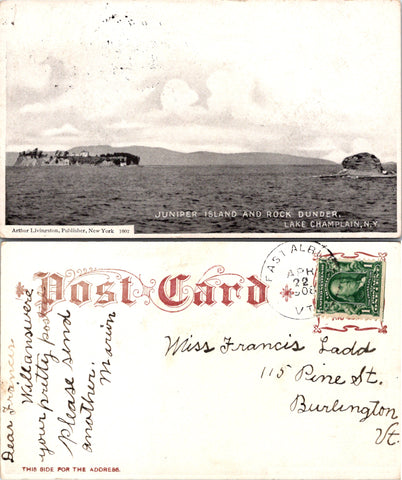 JUNIPER ISLAND AND ROCK DUNDER,
LAKE CHAMPLAIN, N.Y.
Arthur Livingston, Publisher, New York
Post Card
EAST ALB
APR
22
VT.
Miss Francis Ladd
115 Pine St.
Burlington
Vt.
Dear Frances
Will answere
your pretty postal
please send
another.
Marion
THIS SIDE FOR THE ADDRESS.